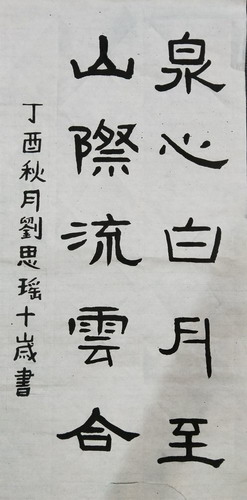 泉心白月至
山際流雲合
丁酉秋月劉思瑶十歲書